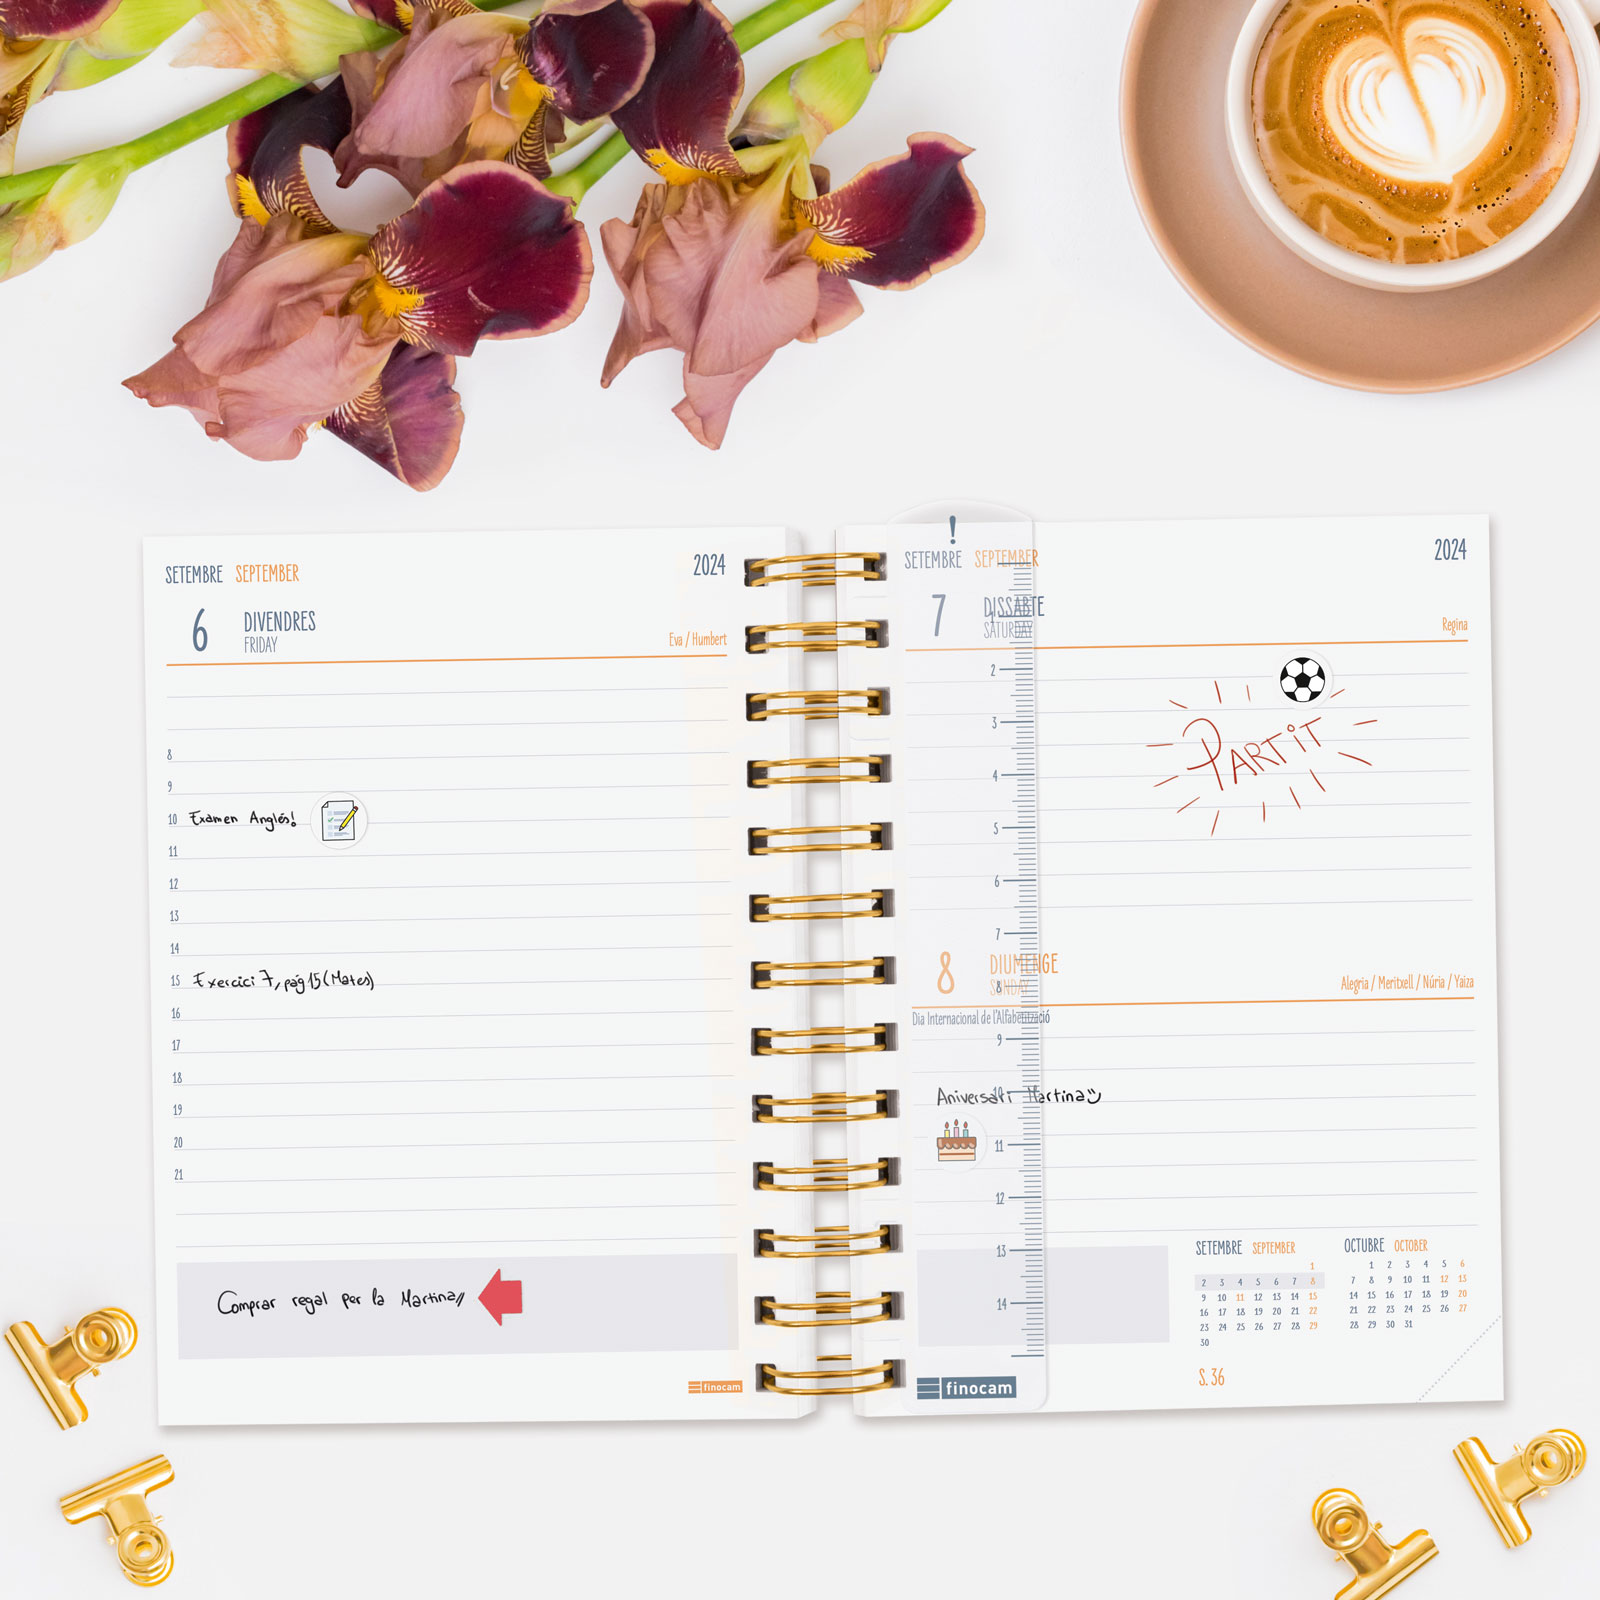 SETEMBRE SEPTEMBER 2024
6 DIVENDRES
FRIDAY
Eva / Humbert
8
9
10 Examen Anglés!
11
12
13
14
15 Exercici 7, pág 15 (Mates)
16
17
18
19
20
21
Comprar regal per la Martina//
finocam
!
SETEMBRE SEPTEMBER 2024
7 DISSABTE
SATURDAY
Regina
PARTIT
8 DIUMENGE
SUNDAY
Alegria / Meritxell / Núria / Yaiza
Dia Internacional de l'Alfabetització
Aniversari Martina
1
2
3
4
5
6
7
8
9
10
11
12
13
14
finocam
SETEMBRE SEPTEMBER
1
2 3 4 5 6 7 8
9 10 11 12 13 14 15
16 17 18 19 20 21 22
23 24 25 26 27 28 29
30
OCTUBRE OCTOBER
1 2 3 4 5 6
7 8 9 10 11 12 13
14 15 16 17 18 19 20
21 22 23 24 25 26 27
28 29 30 31
S. 36